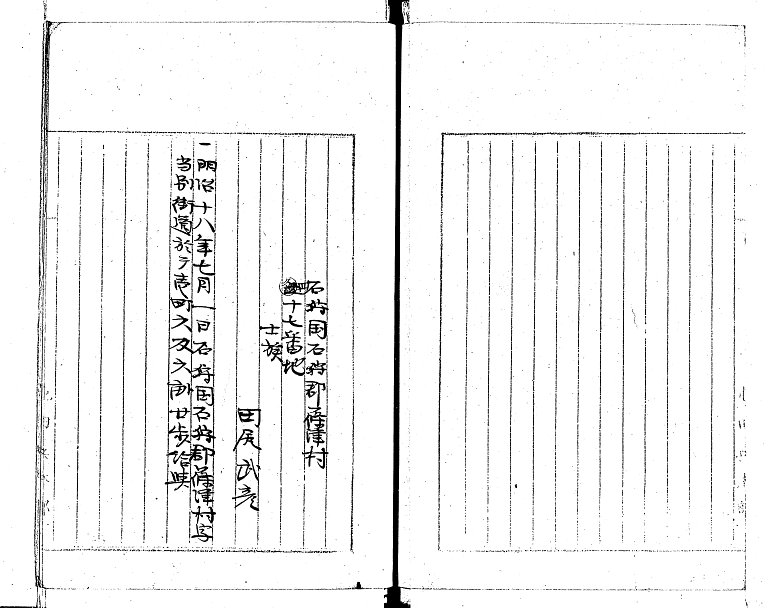 石狩国石狩郡篠津村
十七番地
士族
田尻武彦
一明治十八年七月一日石狩国石狩郡篠津村字
当別街道於テ壱町六反六畝廿歩給与